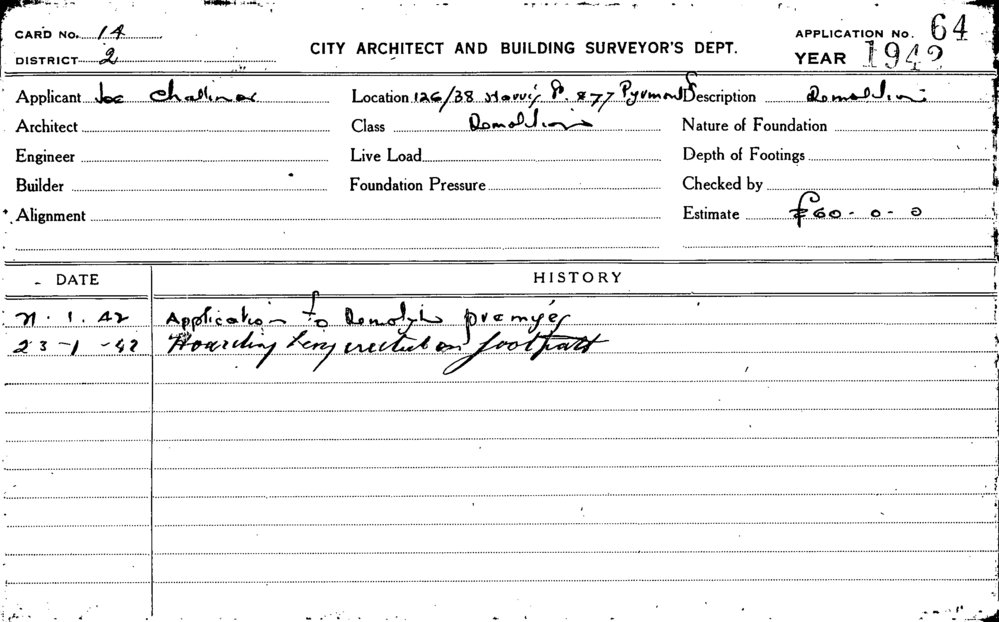 CARD No. 14
DISTRICT 2
CITY ARCHITECT AND BUILDING SURVEYOR'S DEPT.
APPLICATION No. 64
YEAR 1942
Applicant Joe Challinor Location 126/38 Harris St. & 77 Pyrmont St Description Demolition
Architect Class Demolition Nature of Foundation
Engineer Live Load Depth of Footings
Builder Foundation Pressure Checked by
Alignment Estimate £60-0-0
DATE HISTORY
21.1.42 Application to Demolish premises
23-1-42 Hoarding being erected on footpath